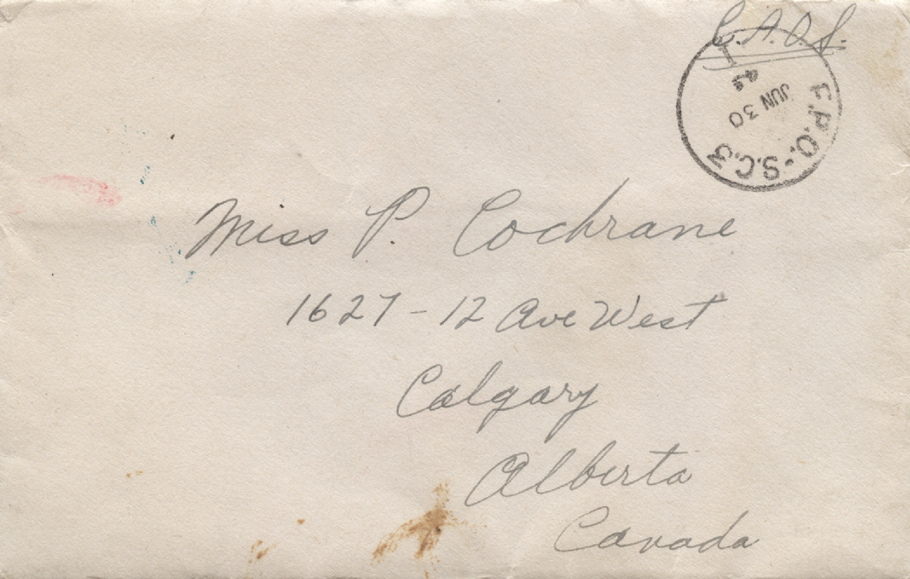 C.A.O.S.
F.P.O.-S.C.3
1
45
JUN 30
Miss P. Cochrane
1627-12 Ave West
Calgary
Alberta
Canada